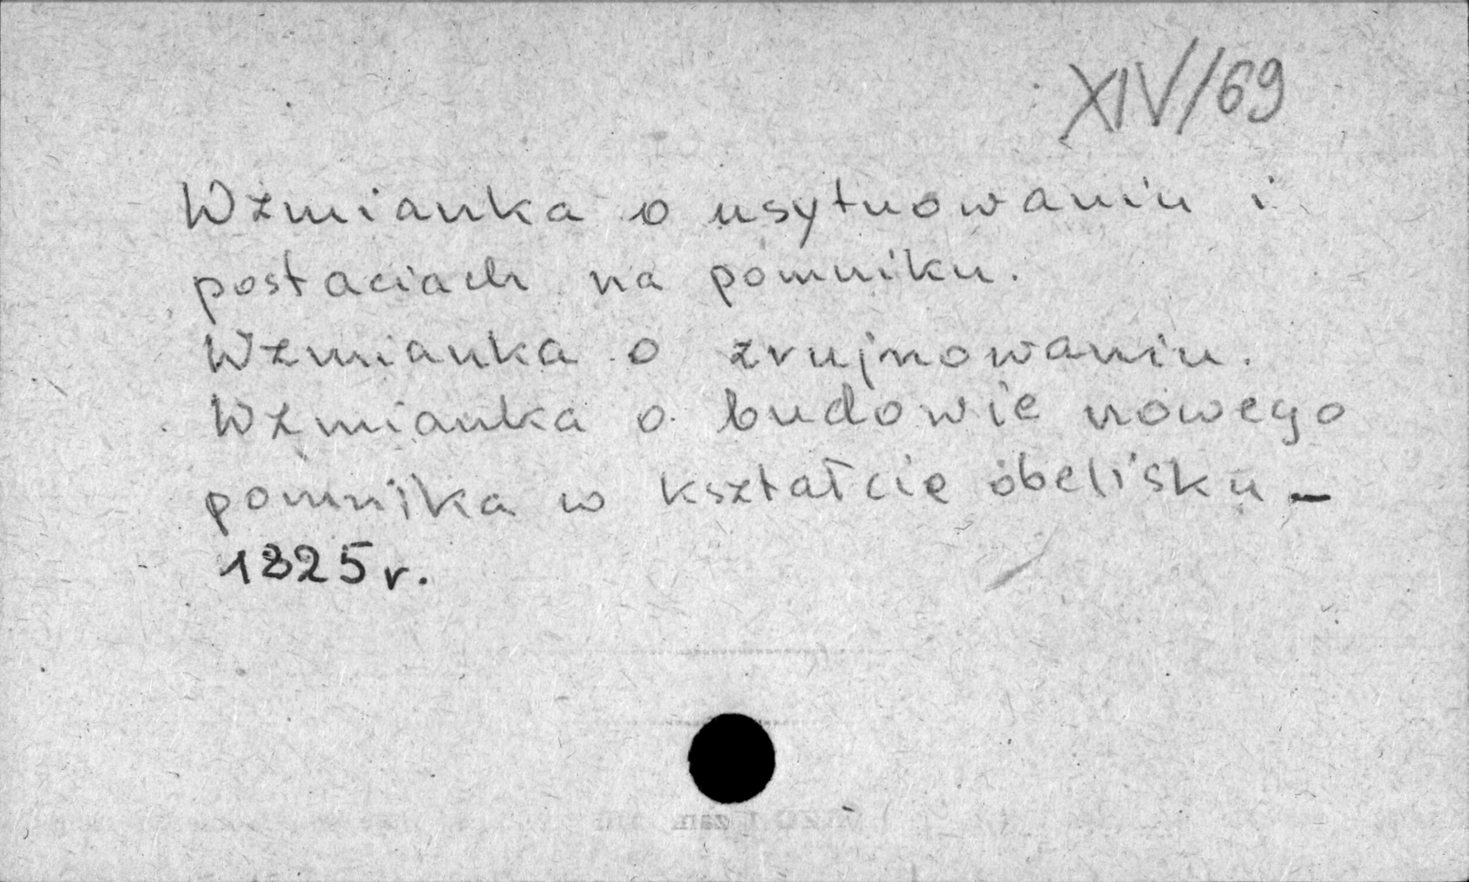 XIV/69
Wzmianka o usytuowaniu i
postaciach na pomniku.
Wzmianka o zrujnowaniu.
Wzmianka o budowie nowego
pomnika w kształcie obelisku -
1825 r.